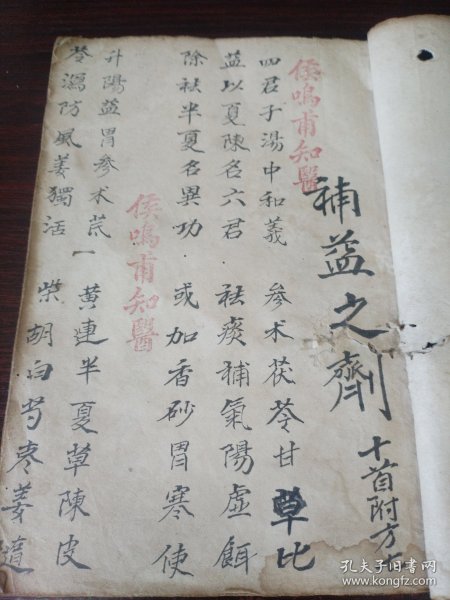 侯鳴甫知醫
補益之劑 十首附方
四君子湯中和義 參术茯苓甘草比
益以夏陳名六君·祛痰補氣陽虛餌
除祛半夏名異功·或加香砂胃寒使
侯鳴甫知醫
升陽益胃參术芪 黃連半夏草陳皮
苓瀉防風羌獨活 柴胡白芍枣姜隨
孔夫子旧书网